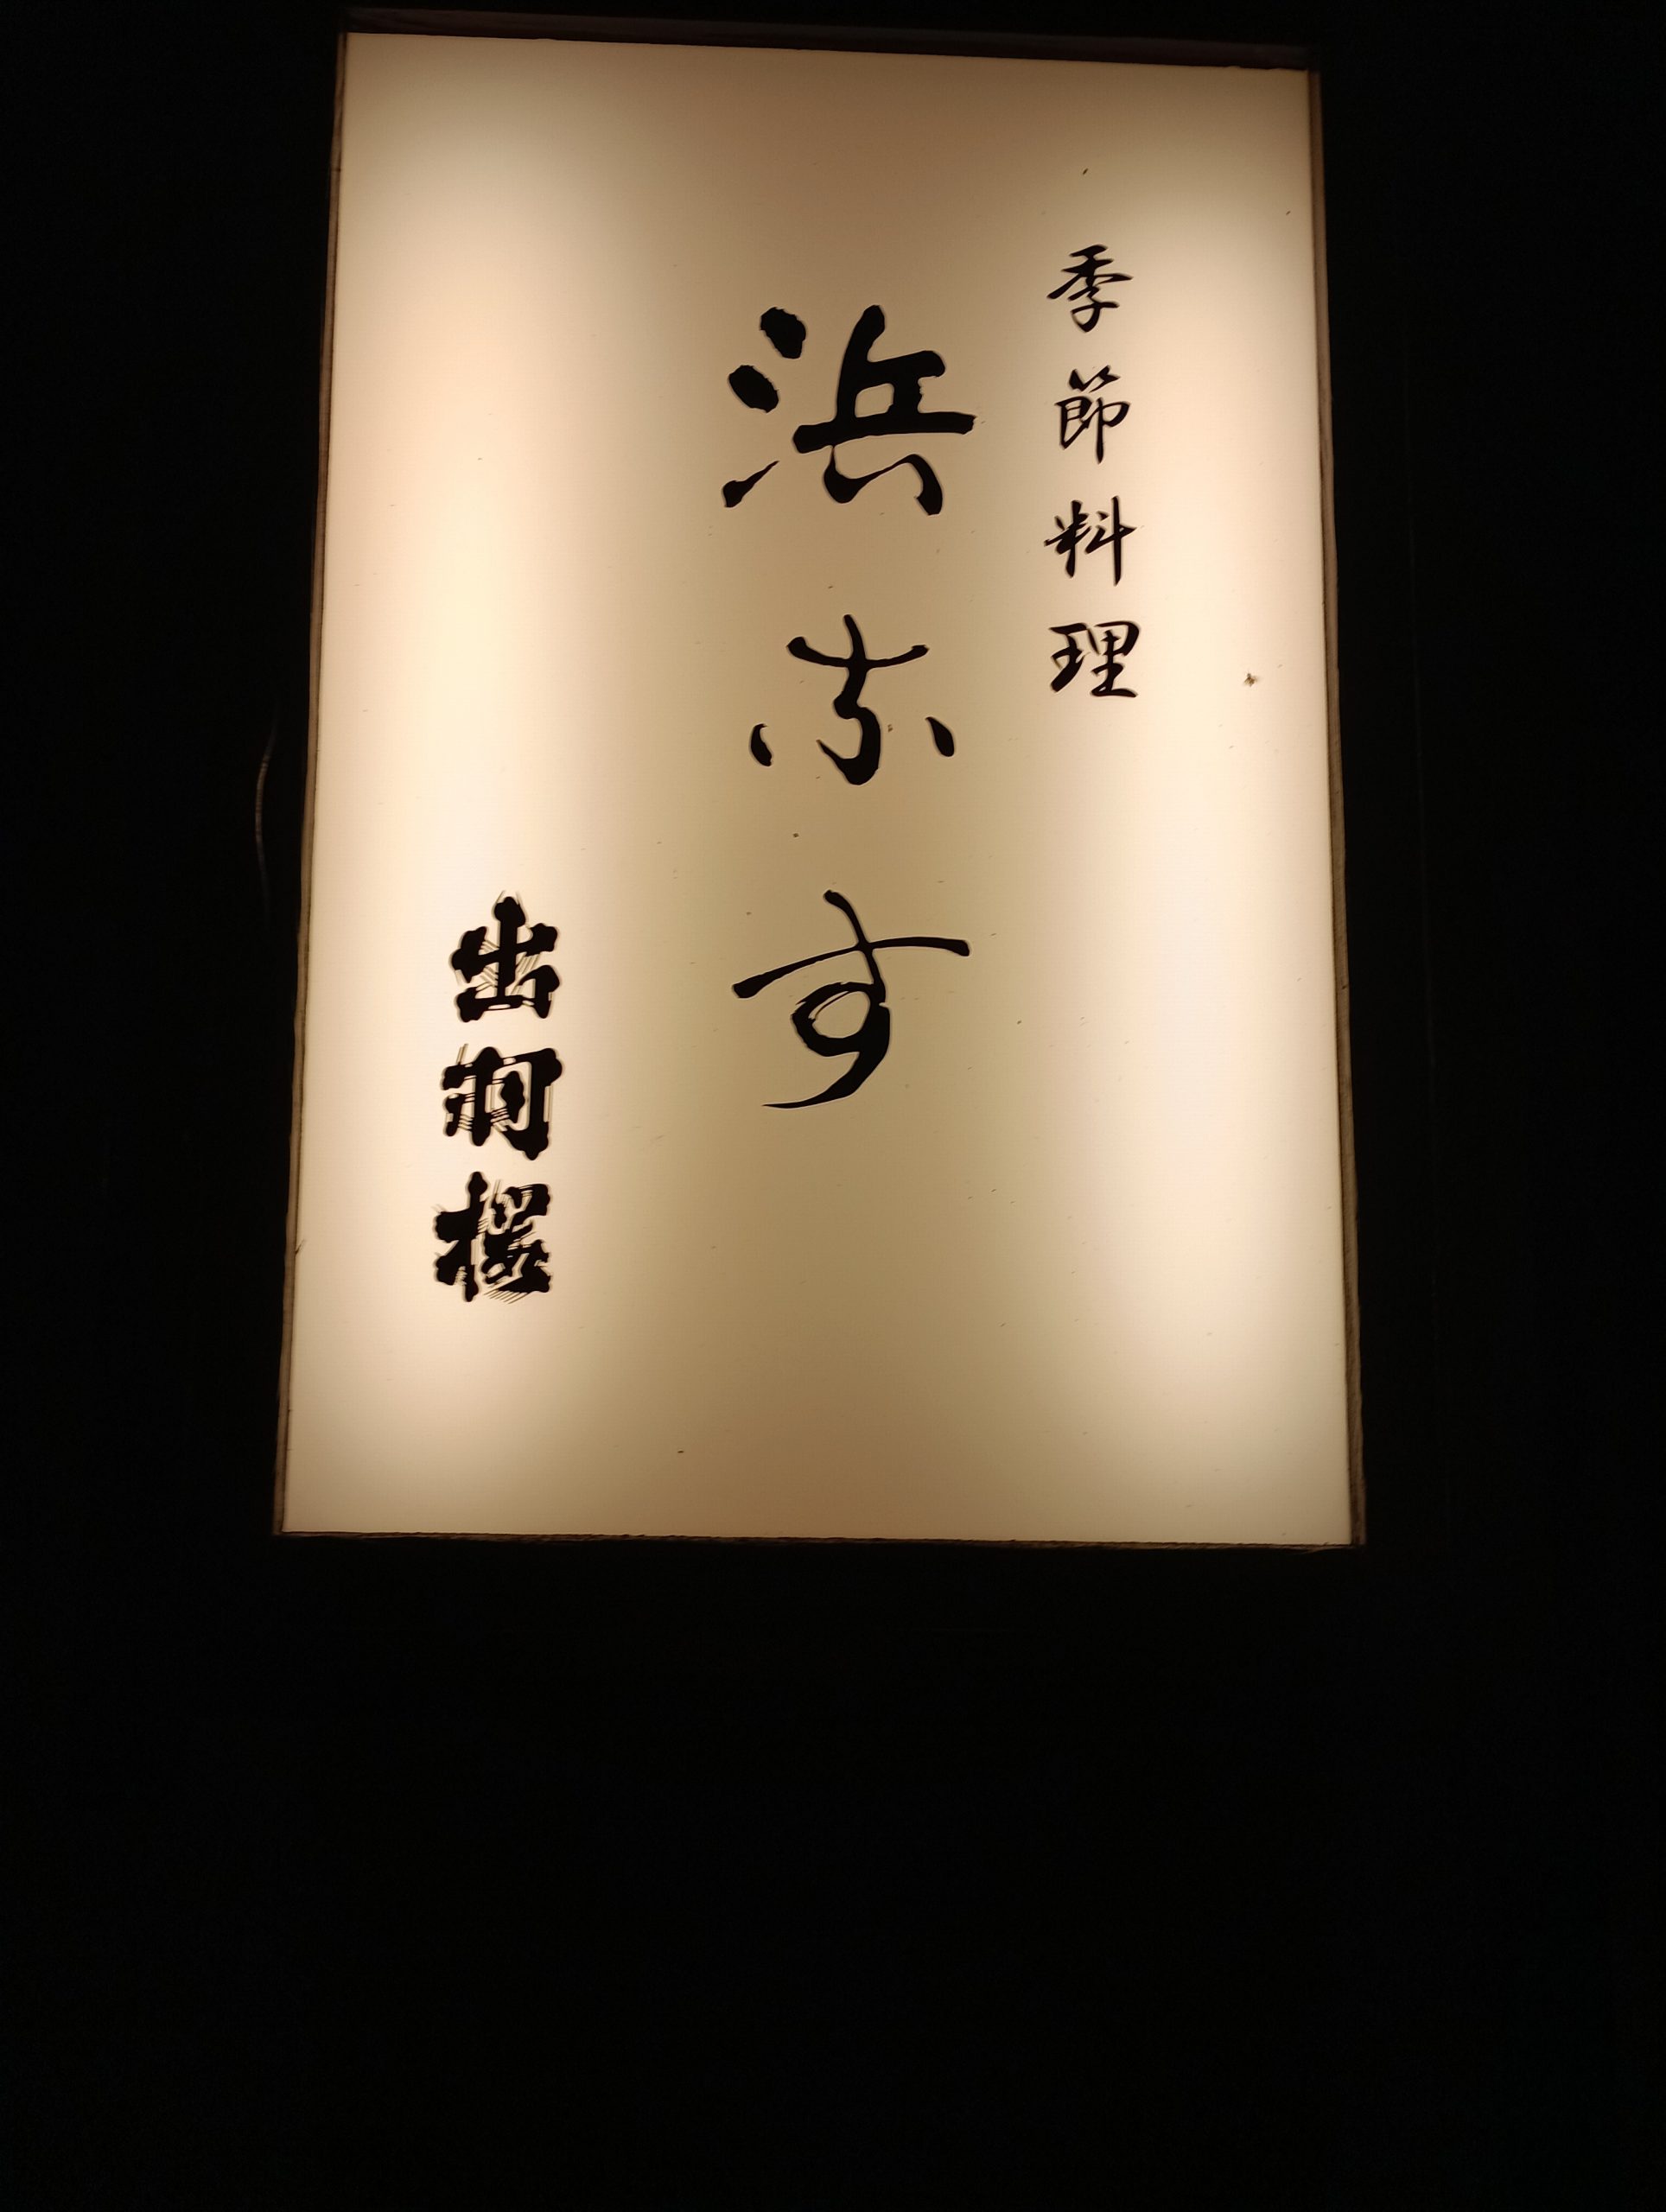 季節料理
浜なす
出羽桜